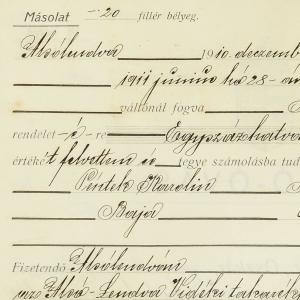 Másolat -·20 fillér bélyeg.
Alsólendva 1910. deczemb
1911 junius hó 28-án
váltónál fogva
rendelet -é- re Egyszázhatva
értékét felvettem és tegye számolásba tud
Péntek Karolin
Baja
Fizetendő Alsólendván
Alsó-Lendva Vidéki takarék